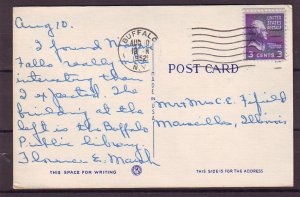 Aug 10.
I found N.
Falls really
interesting than
I expected. The
building at the
left is the Buffalo
Public Library.
Florence E. Marsh
THIS SPACE FOR WRITING
MADE IN U.S.A.
BUFFALO
AUG 11
1952
N.Y.
UNITED STATES
POSTAGE
3 CENTS 3
POST CARD
Mr & Mrs C. E. Fifield
Marseilles, Illinois
THIS SIDE IS FOR THE ADDRESS